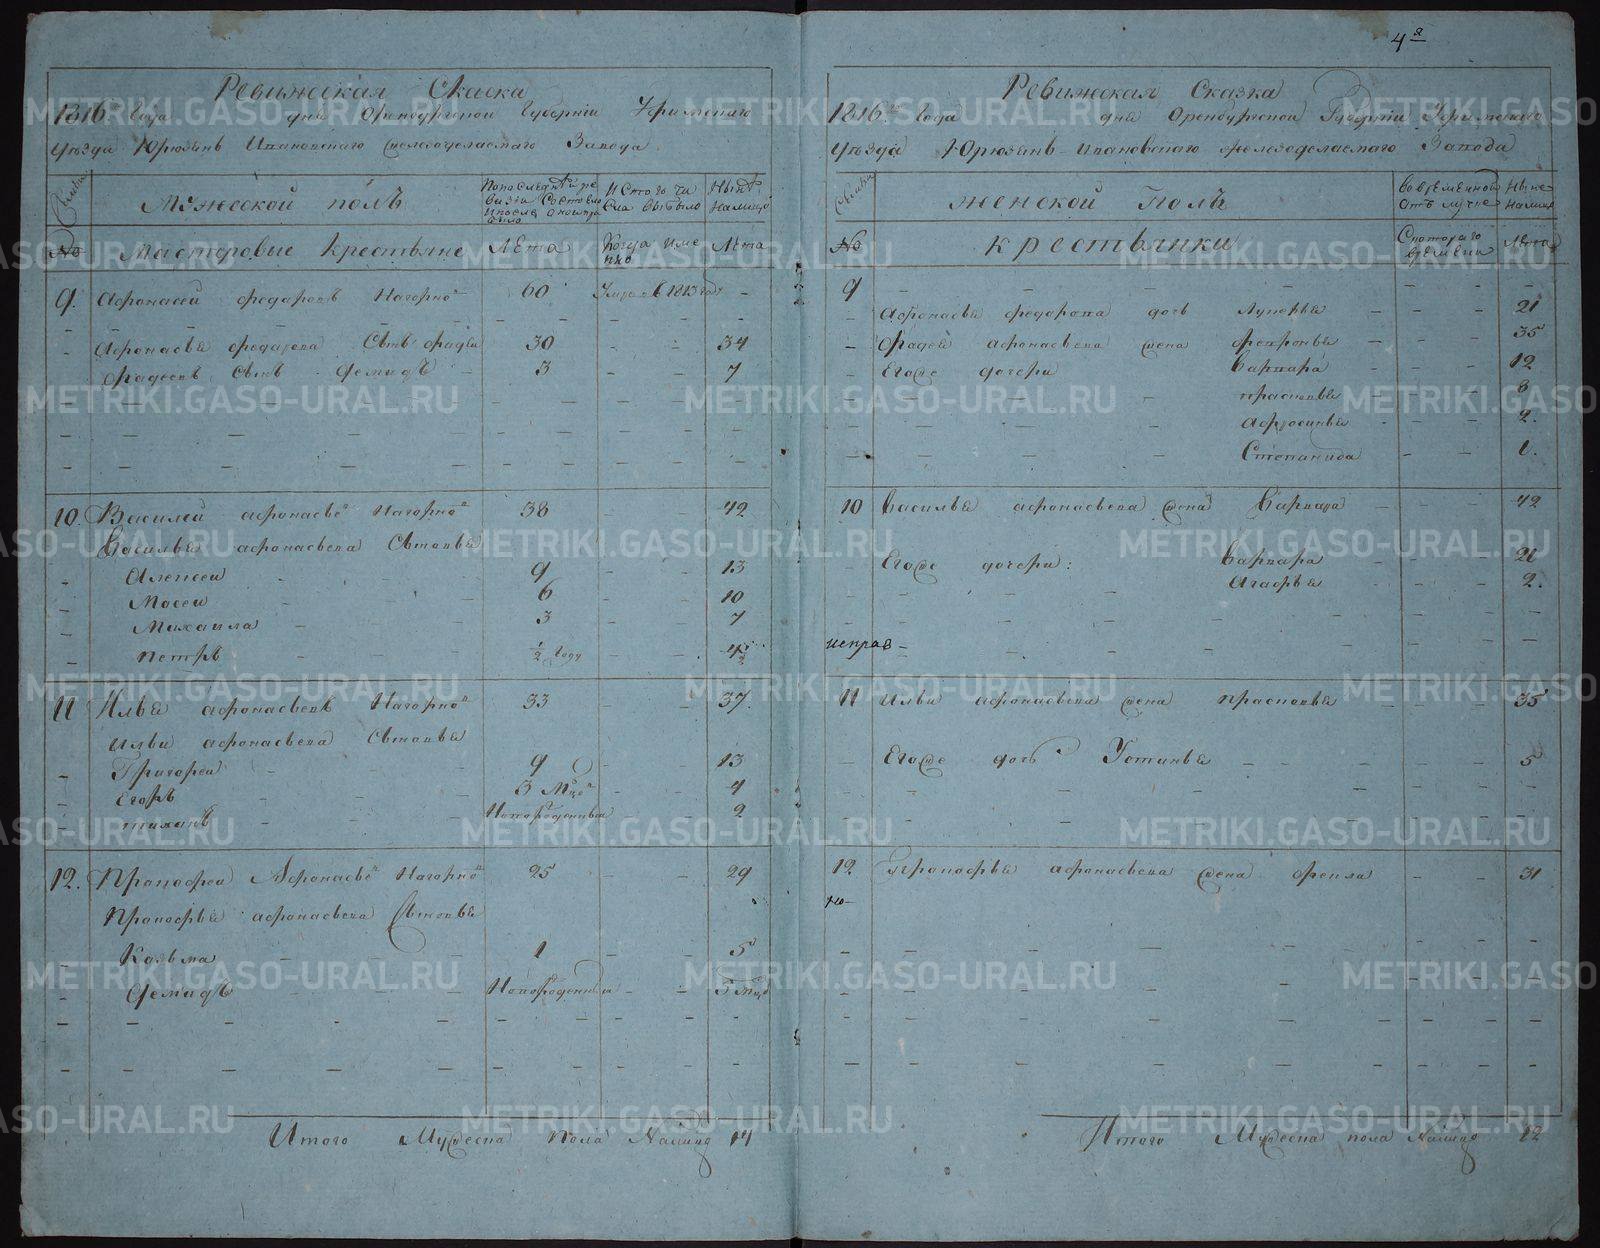 4я
Ревижская Скаска
1816 года дня Оренбургской Губернии Уфимскаго
уезда Юрюзень Ивановскаго железоделаемаго Завода
Семьи
Мужеской полъ
Попоследней ре
визии Состояло
и после оной при
было
Исто го чи
сла выбыло
Ныне
Налицо
№
Мастеровые Крестьяне
Лета
Когда име
нно
Лета
9. Афонасей федаровъ Нагорной 60 Умръ в 1813 году
Афонасья федарова Сынъ фадей 30 34
фадеевъ Сынъ Демидъ 3 7
10. Василей афонасьев Нагорной 38 42
Василья афонасьева Сыновья
Алексей 9 13
Мосей 6 10
Михаила 3 7
Петръ 1/2 году 4 1/2
11 Илья афонасьевъ Нагорной 33 37
Ильи афонасьева Сыновья
Григорей 9 13
Егоръ 3 Мцов 4
тиханъ Новорожденный 2
12. Прокофей Афонасьев Нагорной 25 29
Прокофья афонасьева Сыновья
Козьма 1 5
Демидъ Новорожденный 5 Мцов
Итого Мужеска пола Налицо 14
Ревижская Сказка
1816го года дня Оренбургской Губернии Уфимскаго
уезда Юрюзень-Ивановскаго железоделаемаго Завода
Семьи
женской Полъ
Во временной
отълучке
Ныне
Налицо
№
крестьянки
Скотораго
времени
Лета
9
Афонасья федорова дочь Лукерья 21
Фадея афонасьева жена февронья 35
Егоже дочери Варвара 12
прасковья 8
Афросинья 2.
Степанида 1.
10 Василья афонасьева жена Варвара 42
Егоже дочери: Варвара 21
Агафья 2.
исправ
11 Ильи афонасьева жена прасковья 35
Егоже дочь Устинья 5
12 Прокофья афонасьева жена фекла 31
но
Итого Мужеска пола Налицо 12
METRIKI.GASO-URAL.RU